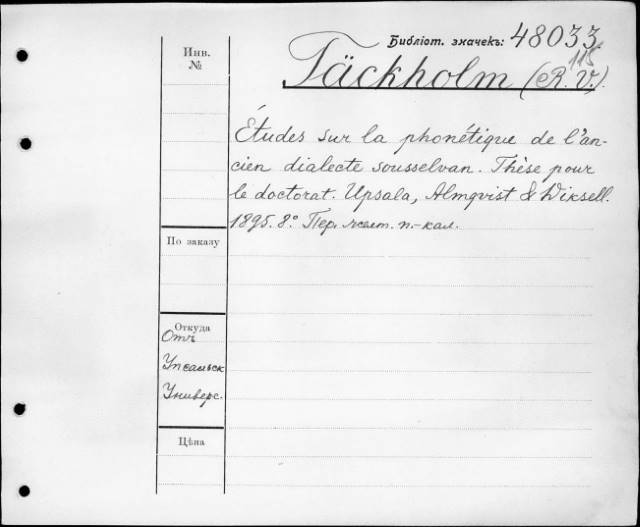 Библiот. значекъ: 48033
115
Täckholm (R. V.).
Инв.
№
Études sur la phonétique de l'an-
cien dialecte sousselvan. Thèse pour
le doctorat. Upsala, Almqvist & Wiksell.
1895. 8.° Пер. желт. п.-кал.
По заказу
Откуда
Отъ
Упсальск
Универс.
Цѣна